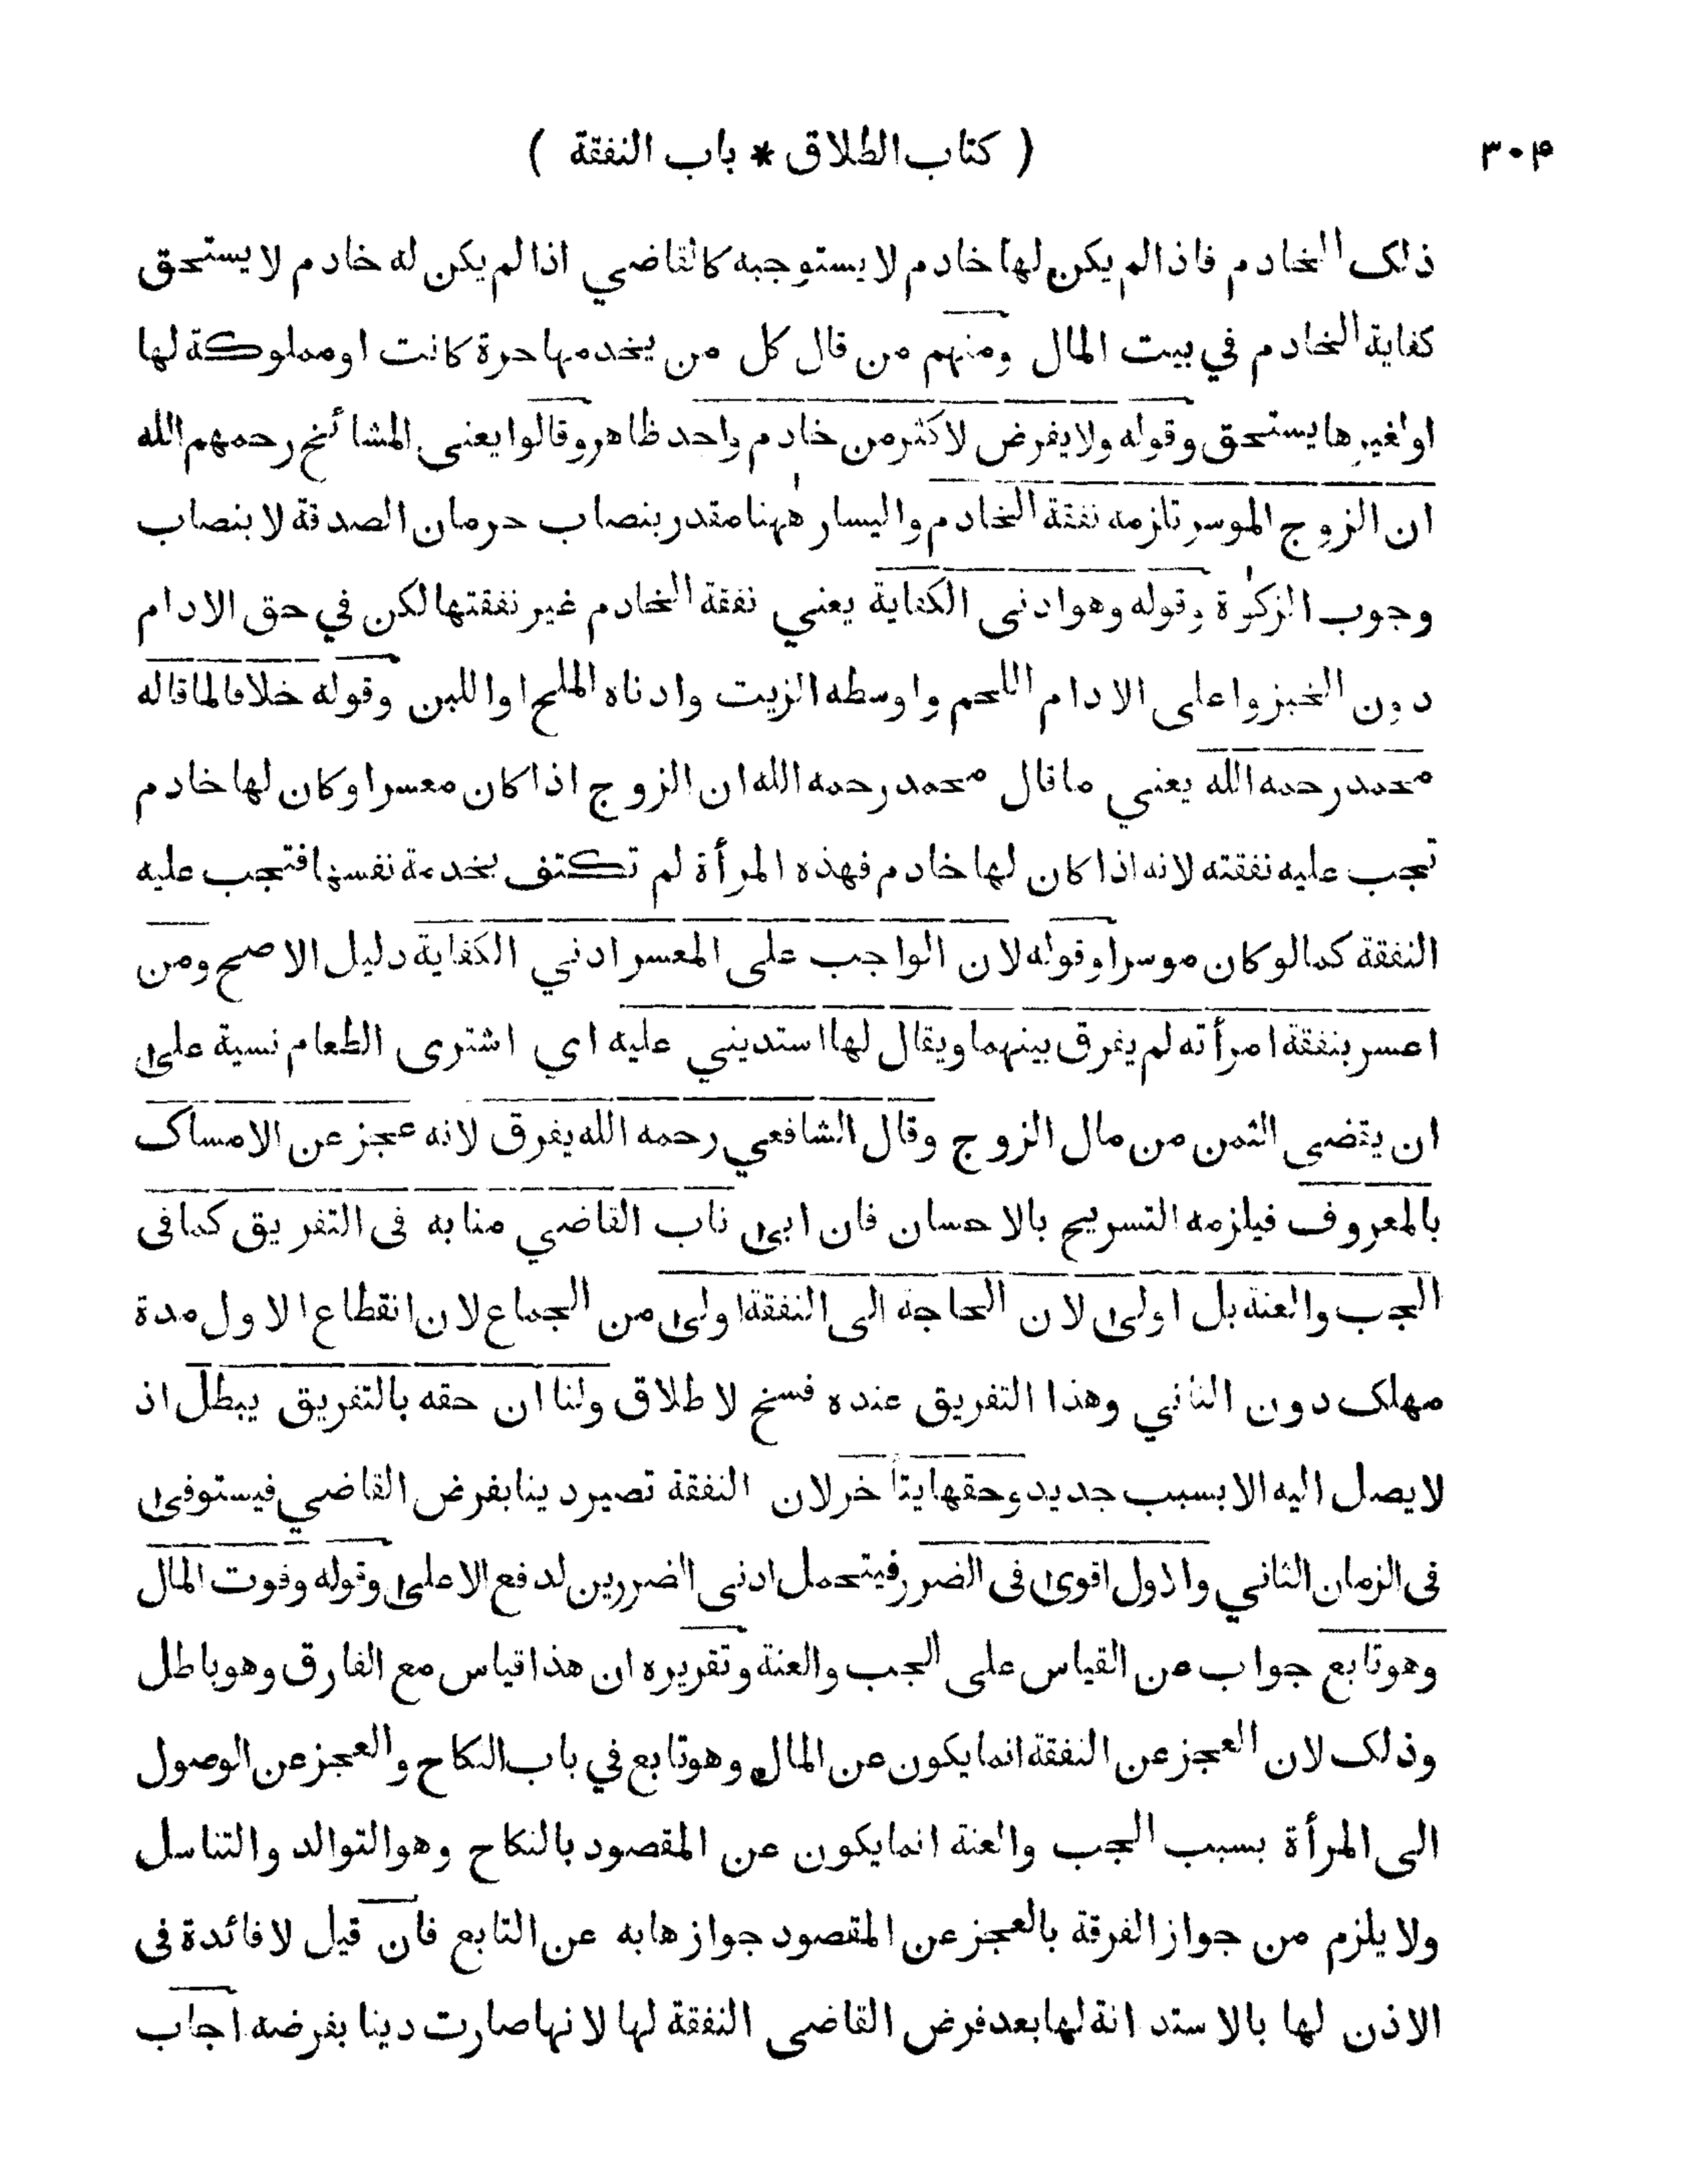 ٣٠۴ ( كتاب الطلاق * باب النفقة )
ذلك الخادم فاذا لم يكن لها خادم لا يستوجبه كالقاضي اذا لم يكن له خادم لا يستحق
كفاية الخادم في بيت المال ومنهم من قال كل من يخدمها حرة كانت او مملوكة لها
او لغيرها يستحق وقوله ولا يفرض لاكثر من خادم واحد ظاهر وقالوا يعنى المشائخ رحمهم الله
ان الزوج الموسر تلزمه نفقة الخادم واليسار ههنا مقدر بنصاب حرمان الصدقة لا بنصاب
وجوب الزكوة وقوله وهو ادنى الكفاية يعني نفقة الخادم غير نفقتها لكن في حق الادام
دون الخبز واعلى الادام اللحم واوسطه الزيت وادناه الملح او اللبن وقوله خلافا لما قاله
محمد رحمه الله يعني ما قال محمد رحمه الله ان الزوج اذا كان معسرا وكان لها خادم
تجب عليه نفقته لانه اذا كان لها خادم فهذه المرأة لم تكتف بخدمة نفسها فتجب عليه
النفقة كما لو كان موسرا وقوله لان الواجب على المعسر ادني الكفاية دليل الاصح ومن
اعسر بنفقة امرأته لم يفرق بينهما ويقال لها استديني عليه اي اشترى الطعام نسية على
ان يقضى الثمن من مال الزوج وقال الشافعي رحمه الله يفرق لانه عجز عن الامساك
بالمعروف فيلزمه التسريح بالاحسان فان ابى ناب القاضي منابه فى التفريق كما فى
الجب والعنة بل اولى لان الحاجة الى النفقة اولى من الجماع لان انقطاع الاول مدة
مهلك دون الثاني وهذا التفريق عنده فسخ لا طلاق ولنا ان حقه بالتفريق يبطل اذ
لا يصل اليه الا بسبب جديد وحقها يتأخر لان النفقة تصير دينا بفرض القاضي فيستوفى
فى الزمان الثاني والاول اقوى فى الضرر فيتحمل ادنى الضررين لدفع الاعلى وقوله وفوت المال
وهو تابع جواب عن القياس على الجب والعنة وتقريره ان هذا قياس مع الفارق وهو باطل
وذلك لان العجز عن النفقة انما يكون عن المال وهو تابع في باب النكاح والعجز عن الوصول
الى المرأة بسبب الجب والعنة انما يكون عن المقصود بالنكاح وهو التوالد والتناسل
ولا يلزم من جواز الفرقة بالعجز عن المقصود جوازها به عن التابع فان قيل لا فائدة فى
الاذن لها بالاستدانة لها بعد فرض القاضى النفقة لها لانها صارت دينا بفرضه اجاب